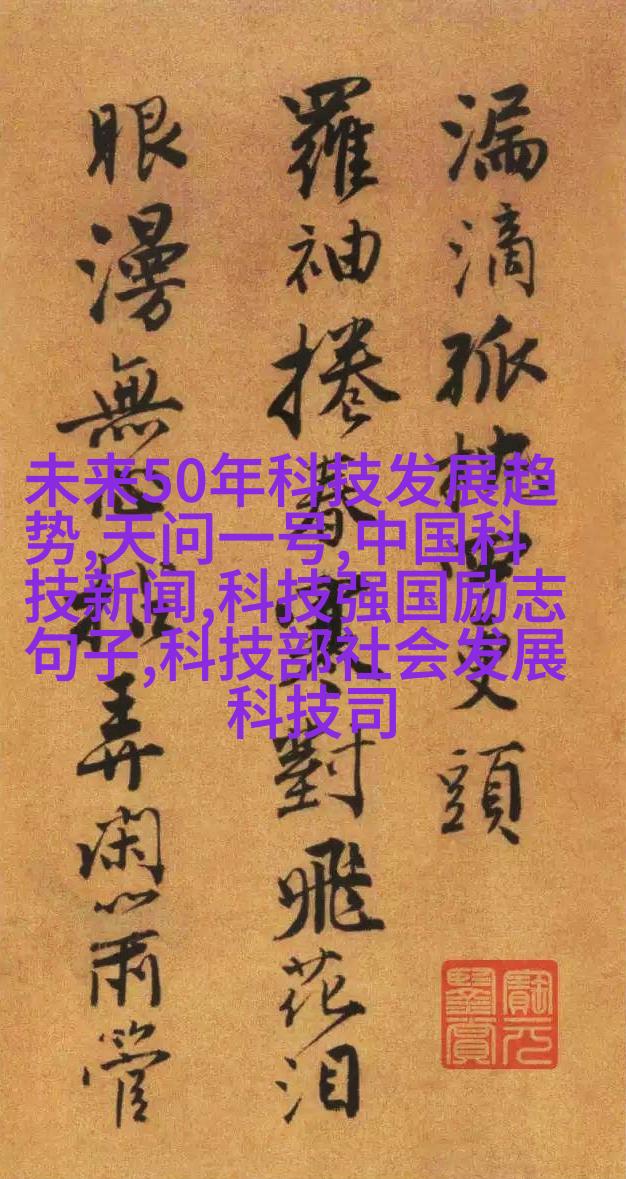 漏滴孤更頭
羅袖捲春寒對飛花泪
眼漫無心弄閑
管
未来50年科技发展趋
势,天问一号,中国科
技新闻,科技强国励志
句子,科技部社会发展
科技司